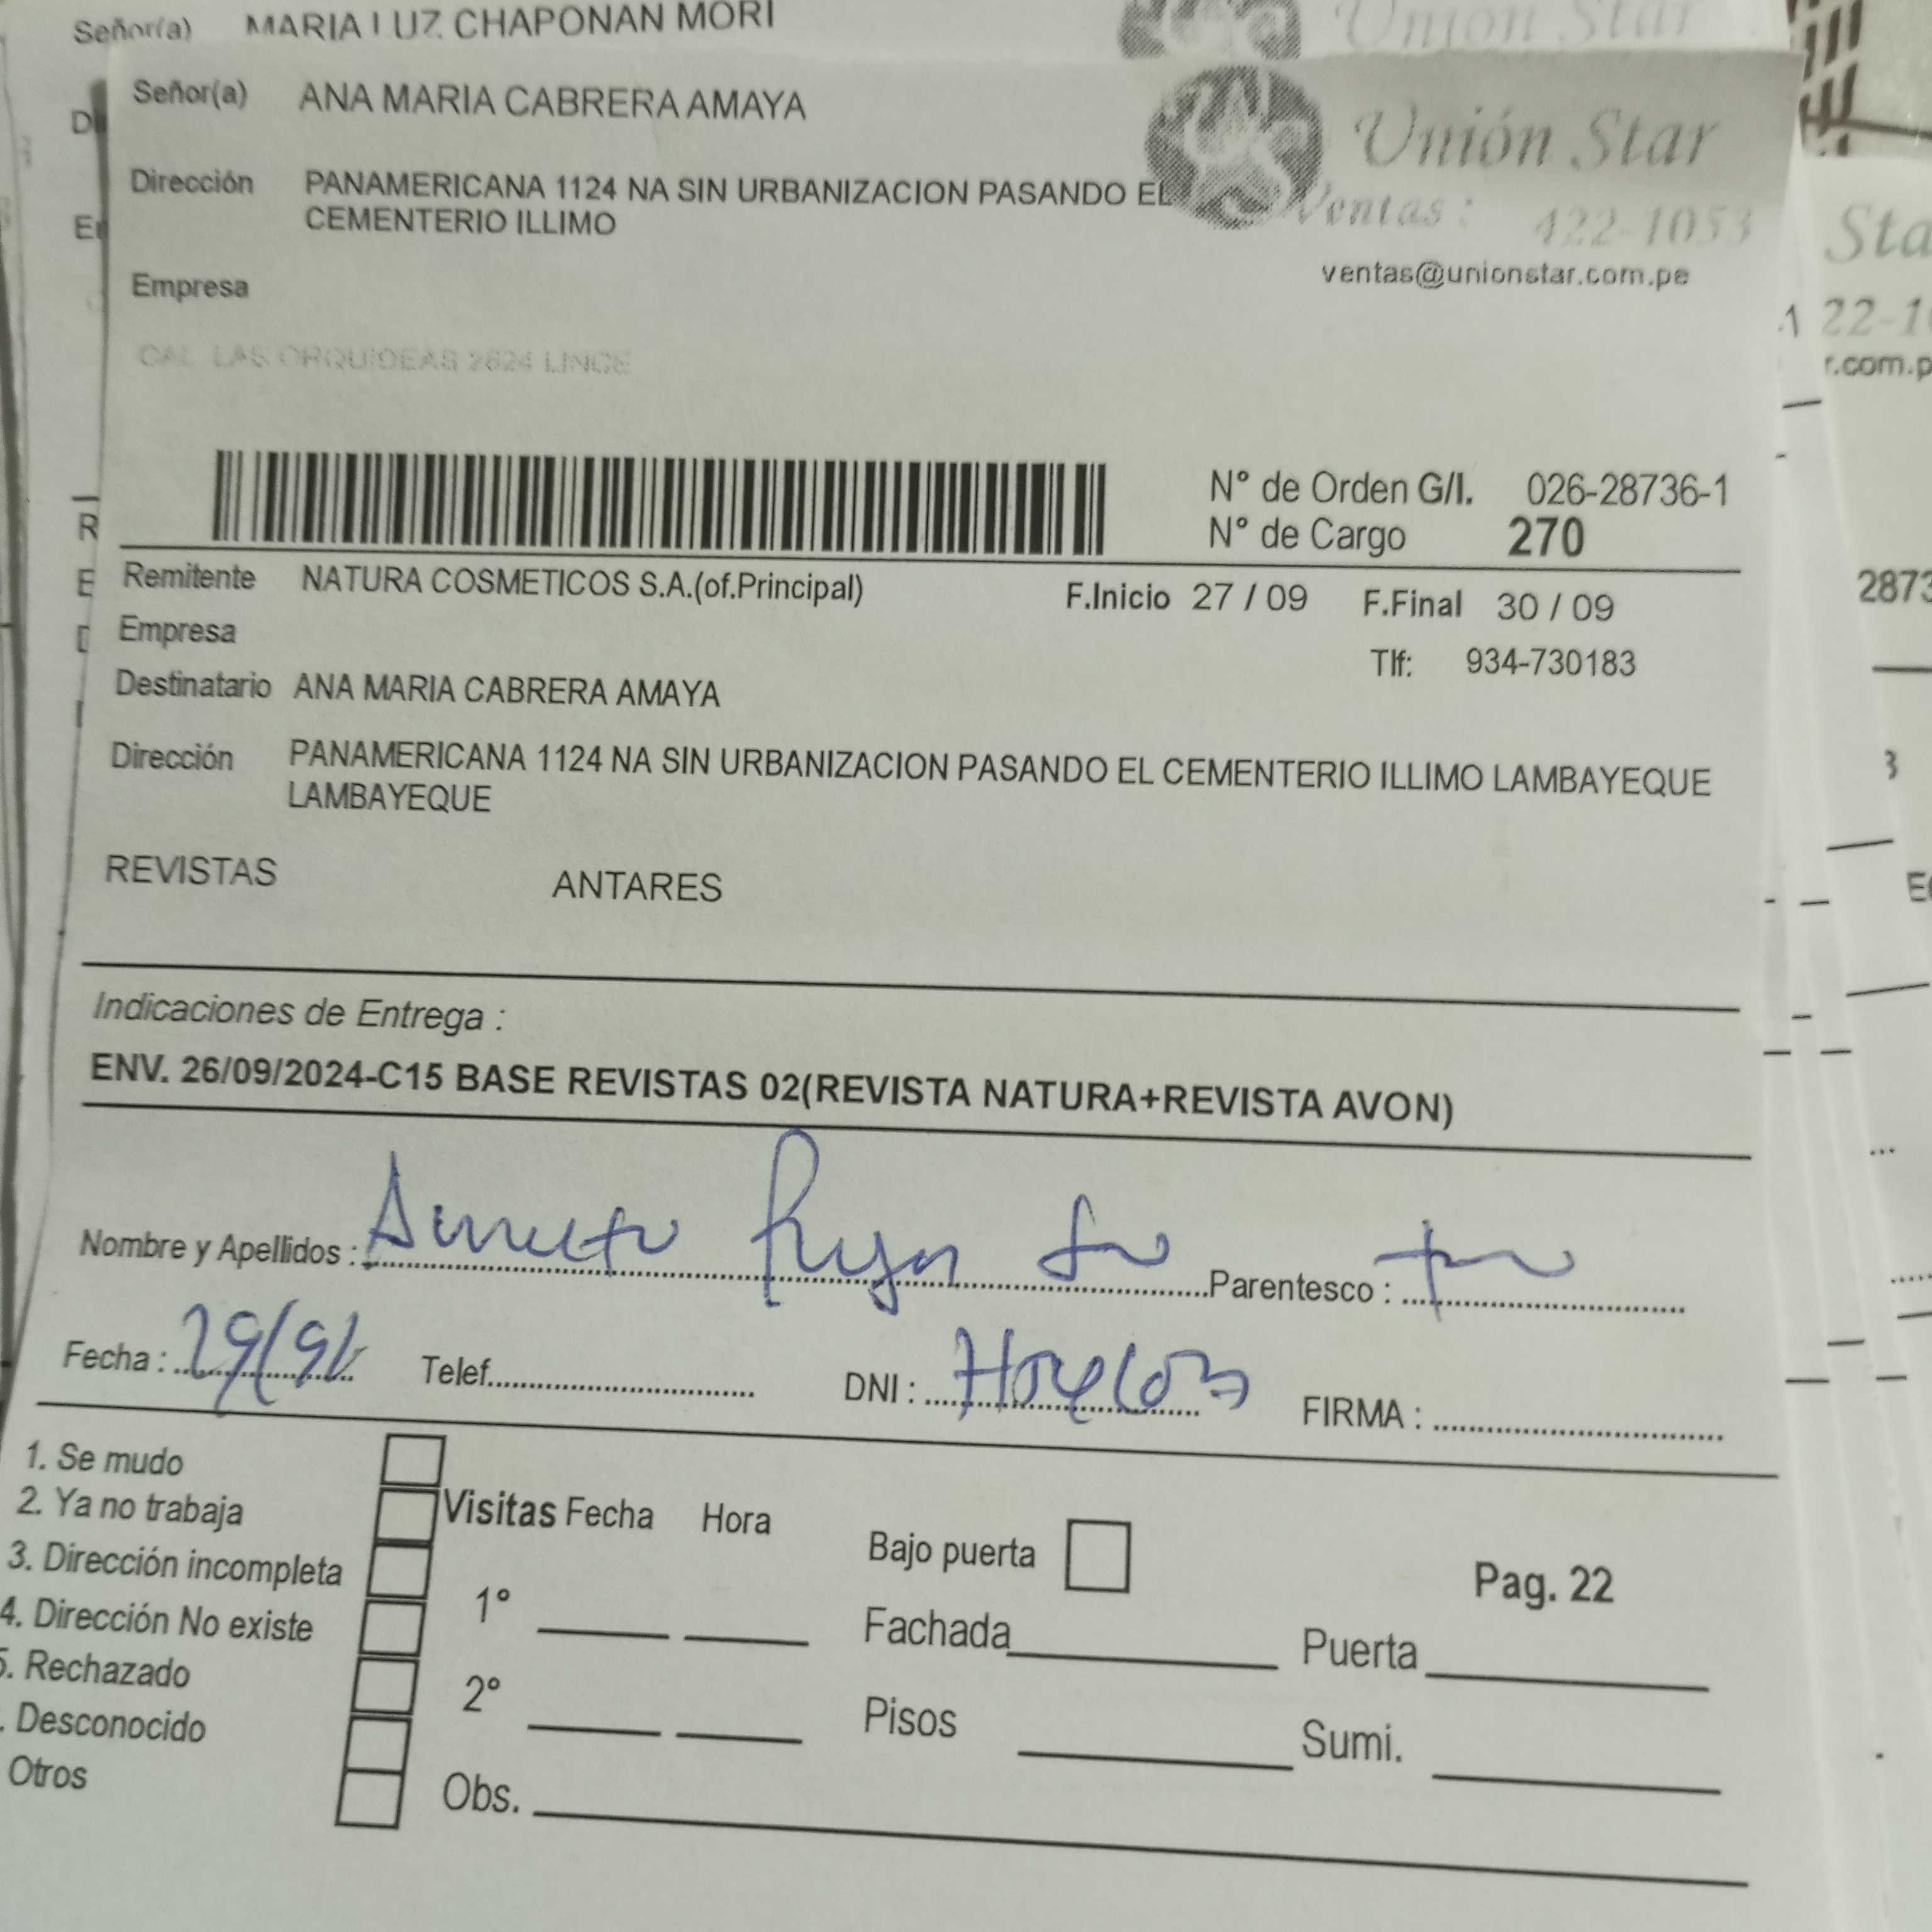 Señor(a) MARIA LUZ CHAPONAN MORI
Unión Star
Señor(a) ANA MARIA CABRERA AMAYA
Unión Star
Dirección PANAMERICANA 1124 NA SIN URBANIZACION PASANDO EL
CEMENTERIO ILLIMO
Ventas : 422-1053
ventas@unionstar.com.pe
Empresa
CAL. LAS ORQUIDEAS 2624 LINCE
N° de Orden G/I. 026-28736-1
N° de Cargo 270
Remitente NATURA COSMETICOS S.A.(of.Principal) F.Inicio 27 / 09 F.Final 30 / 09
Empresa
Tlf: 934-730183
Destinatario ANA MARIA CABRERA AMAYA
Dirección PANAMERICANA 1124 NA SIN URBANIZACION PASANDO EL CEMENTERIO ILLIMO LAMBAYEQUE
LAMBAYEQUE
REVISTAS ANTARES
Indicaciones de Entrega :
ENV. 26/09/2024-C15 BASE REVISTAS 02(REVISTA NATURA+REVISTA AVON)
Nombre y Apellidos : Parentesco :
Fecha : Telef. DNI : FIRMA :
1. Se mudo
2. Ya no trabaja
3. Dirección incompleta
4. Dirección No existe
5. Rechazado
. Desconocido
Otros
Visitas Fecha Hora
1°
2°
Obs.
Bajo puerta
Pag. 22
Fachada Puerta
Pisos Sumi.
Sta
22-1
r.com.p
2873